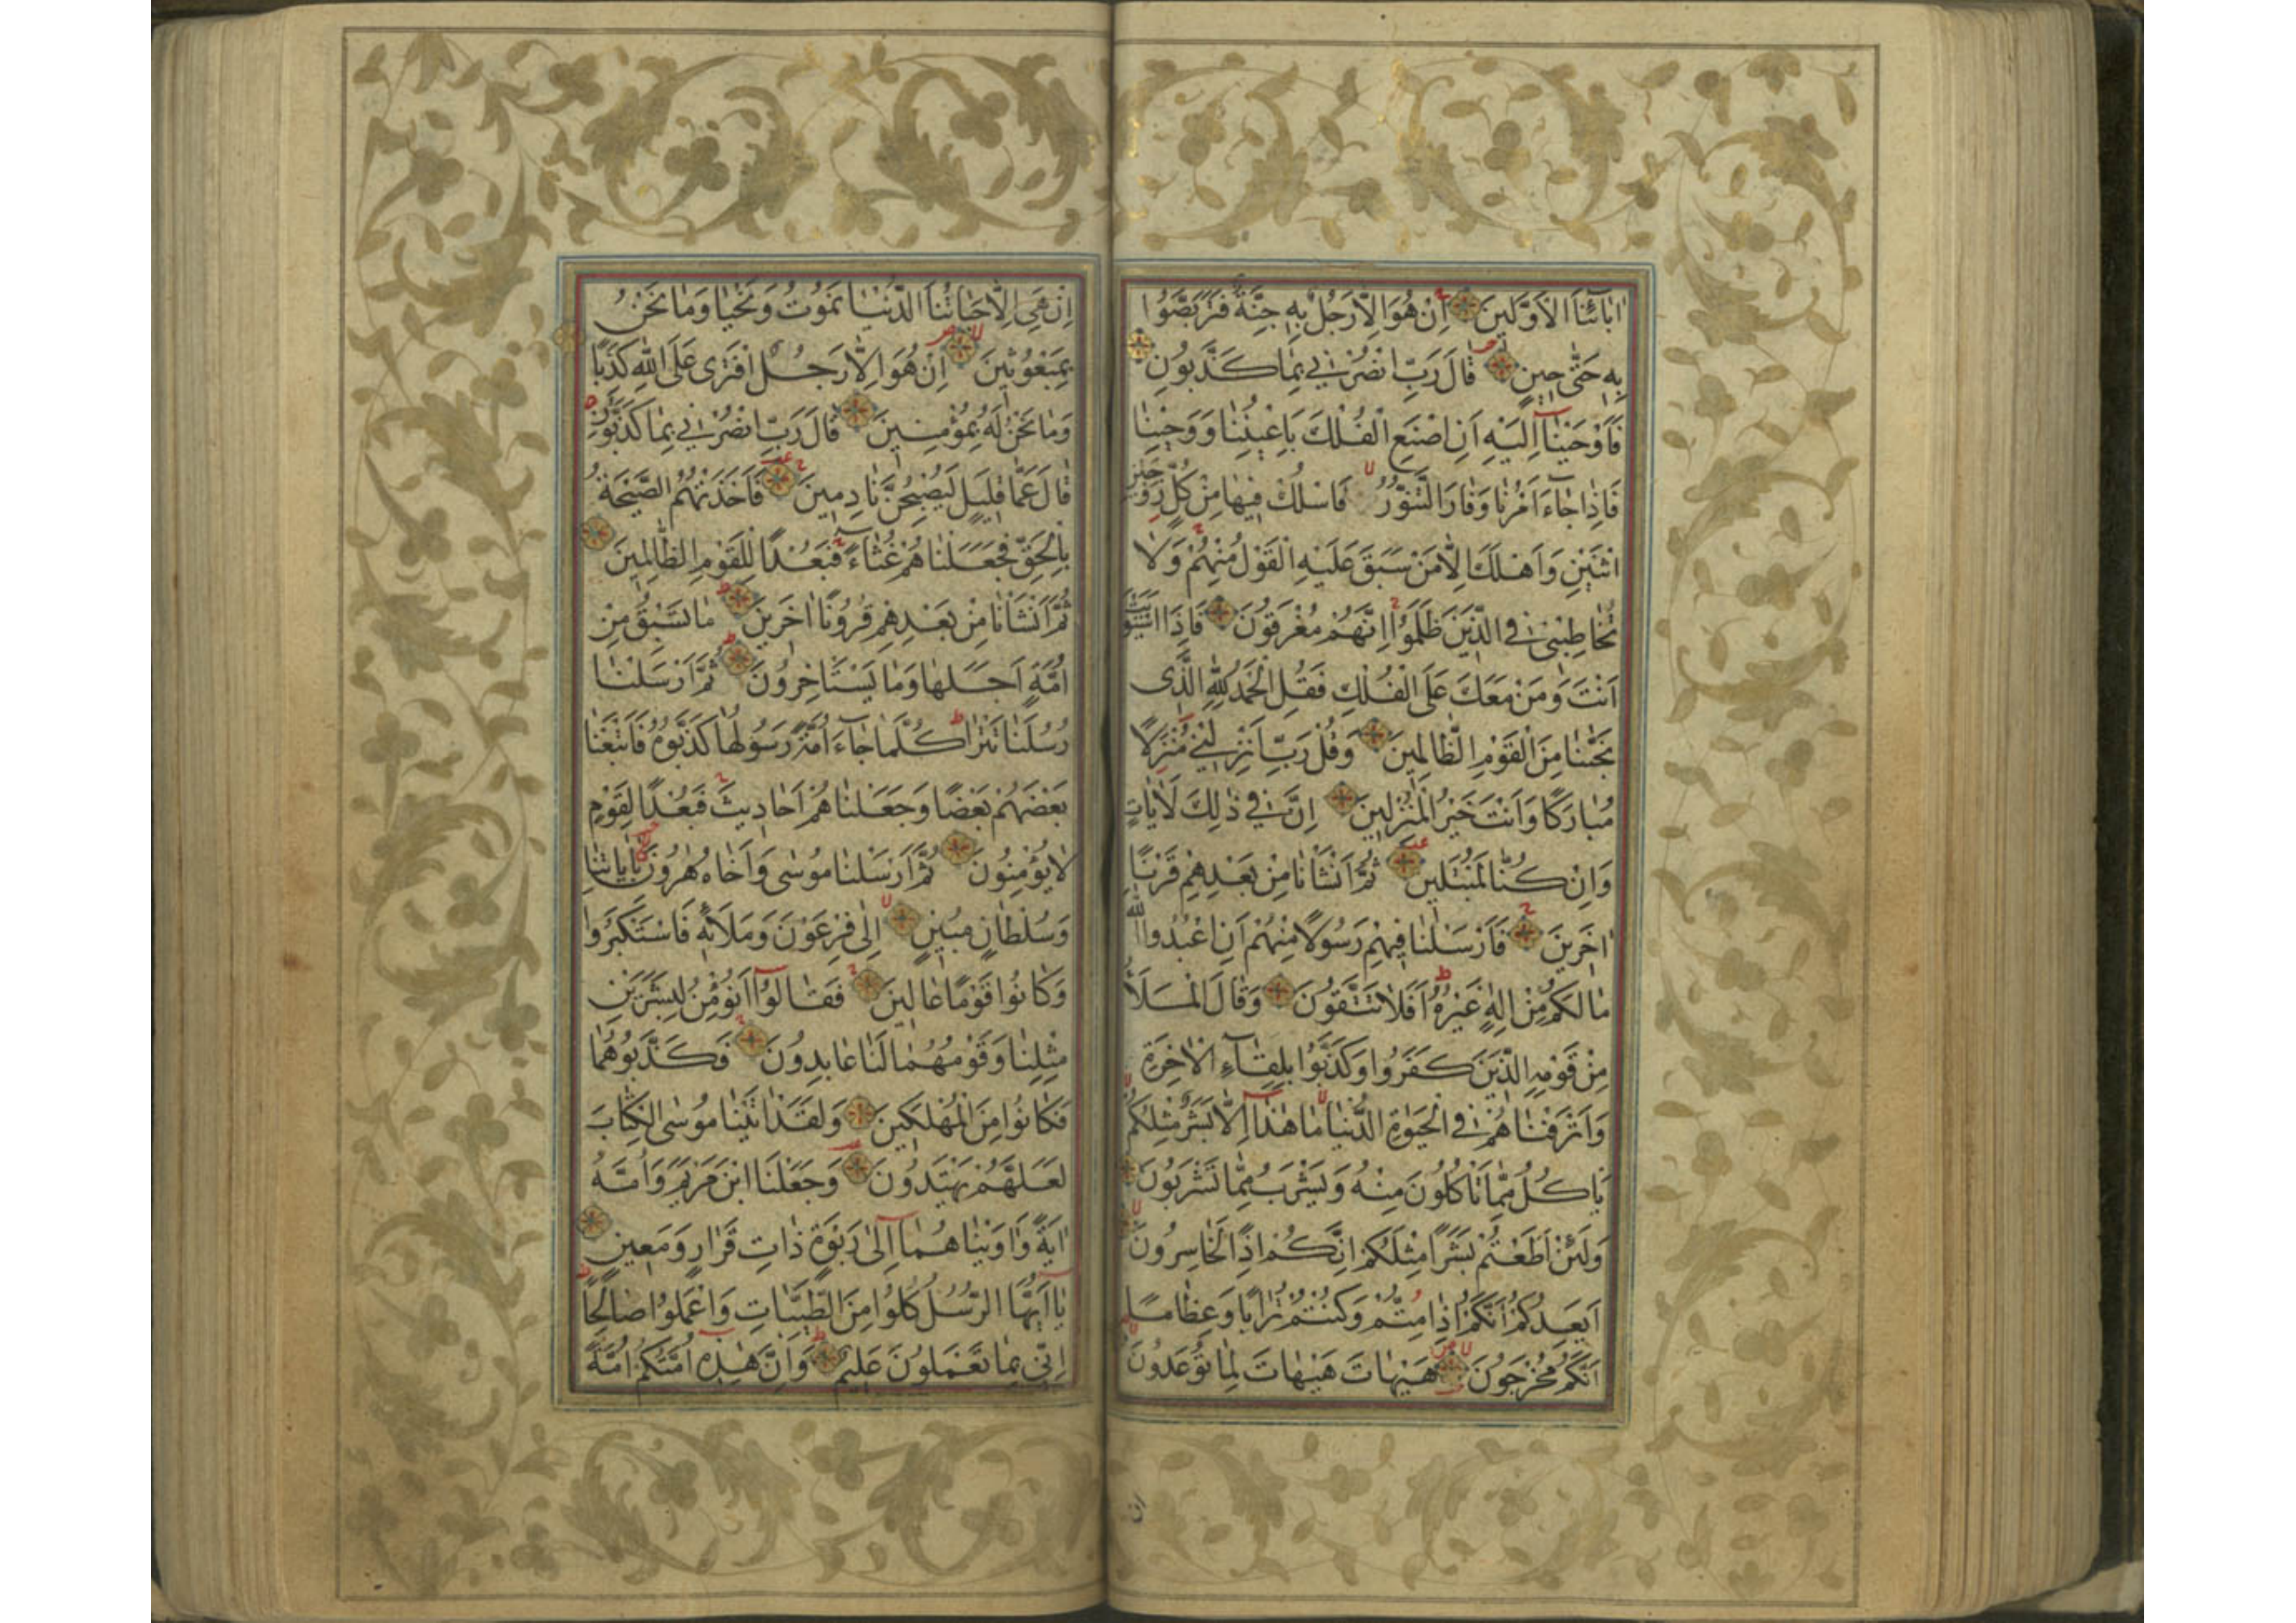 اٰبَائِنَا الْاَوَّلِينَ اِنْ هُوَ اِلَّا رَجُلٌ بِهِ جِنَّةٌ فَتَرَبَّصُوا
بِهِ حَتّٰى حِينٍ قَالَ رَبِّ انْصُرْنِي بِمَا كَذَّبُونِ
فَاَوْحَيْنَا اِلَيْهِ اَنِ اصْنَعِ الْفُلْكَ بِاَعْيُنِنَا وَوَحْيِنَا
فَاِذَا جَاءَ اَمْرُنَا وَفَارَ التَّنُّورُ فَاسْلُكْ فِيهَا مِنْ كُلٍّ زَوْجَيْنِ
اثْنَيْنِ وَاَهْلَكَ اِلَّا مَنْ سَبَقَ عَلَيْهِ الْقَوْلُ مِنْهُمْ وَلَا
تُخَاطِبْنِي فِي الَّذِينَ ظَلَمُوا اِنَّهُمْ مُغْرَقُونَ فَاِذَا اسْتَوَيْتَ
اَنْتَ وَمَنْ مَعَكَ عَلَى الْفُلْكِ فَقُلِ الْحَمْدُ لِلّٰهِ الَّذِى
نَجّٰينَا مِنَ الْقَوْمِ الظَّالِمِينَ وَقُلْ رَبِّ اَنْزِلْنِي مُنْزَلًا
مُبَارَكًا وَاَنْتَ خَيْرُ الْمُنْزِلِينَ اِنَّ فِي ذٰلِكَ لَاٰيَاتٍ
وَاِنْ كُنَّا لَمُبْتَلِينَ ثُمَّ اَنْشَاْنَا مِنْ بَعْدِهِمْ قَرْنًا
اٰخَرِينَ فَاَرْسَلْنَا فِيهِمْ رَسُولًا مِنْهُمْ اَنِ اعْبُدُوا اللّٰهَ
مَا لَكُمْ مِنْ اِلٰهٍ غَيْرُهُ اَفَلَا تَتَّقُونَ وَقَالَ الْمَلَاُ
مِنْ قَوْمِهِ الَّذِينَ كَفَرُوا وَكَذَّبُوا بِلِقَاءِ الْاٰخِرَةِ
وَاَتْرَفْنَاهُمْ فِي الْحَيٰوةِ الدُّنْيَا مَا هٰذَا اِلَّا بَشَرٌ مِثْلُكُمْ
يَاْكُلُ مِمَّا تَاْكُلُونَ مِنْهُ وَيَشْرَبُ مِمَّا تَشْرَبُونَ
وَلَئِنْ اَطَعْتُمْ بَشَرًا مِثْلَكُمْ اِنَّكُمْ اِذًا لَخَاسِرُونَ
اَيَعِدُكُمْ اَنَّكُمْ اِذَا مِتُّمْ وَكُنْتُمْ تُرَابًا وَعِظَامًا
اَنَّكُمْ مُخْرَجُونَ هَيْهَاتَ هَيْهَاتَ لِمَا تُوعَدُونَ
ان
اِنْ هِيَ اِلَّا حَيَاتُنَا الدُّنْيَا نَمُوتُ وَنَحْيَا وَمَا نَحْنُ
بِمَبْعُوثِينَ اِنْ هُوَ اِلَّا رَجُلٌ افْتَرٰى عَلَى اللّٰهِ كَذِبًا
وَمَا نَحْنُ لَهُ بِمُؤْمِنِينَ قَالَ رَبِّ انْصُرْنِي بِمَا كَذَّبُونِ
قَالَ عَمَّا قَلِيلٍ لَيُصْبِحُنَّ نَادِمِينَ فَاَخَذَتْهُمُ الصَّيْحَةُ
بِالْحَقِّ فَجَعَلْنَاهُمْ غُثَاءً فَبُعْدًا لِلْقَوْمِ الظَّالِمِينَ
ثُمَّ اَنْشَاْنَا مِنْ بَعْدِهِمْ قُرُونًا اٰخَرِينَ مَا تَسْبِقُ مِنْ
اُمَّةٍ اَجَلَهَا وَمَا يَسْتَاْخِرُونَ ثُمَّ اَرْسَلْنَا
رُسُلَنَا تَتْرَا كُلَّمَا جَاءَ اُمَّةً رَسُولُهَا كَذَّبُوهُ فَاَتْبَعْنَا
بَعْضَهُمْ بَعْضًا وَجَعَلْنَاهُمْ اَحَادِيثَ فَبُعْدًا لِقَوْمٍ
لَا يُؤْمِنُونَ ثُمَّ اَرْسَلْنَا مُوسٰى وَاَخَاهُ هٰرُونَ بِاٰيَاتِنَا
وَسُلْطَانٍ مُبِينٍ اِلٰى فِرْعَوْنَ وَمَلَائِهِ فَاسْتَكْبَرُوا
وَكَانُوا قَوْمًا عَالِينَ فَقَالُوا اَنُؤْمِنُ لِبَشَرَيْنِ
مِثْلِنَا وَقَوْمُهُمَا لَنَا عَابِدُونَ فَكَذَّبُوهُمَا
فَكَانُوا مِنَ الْمُهْلَكِينَ وَلَقَدْ اٰتَيْنَا مُوسَى الْكِتَابَ
لَعَلَّهُمْ يَهْتَدُونَ وَجَعَلْنَا ابْنَ مَرْيَمَ وَاُمَّهُ
اٰيَةً وَاٰوَيْنَاهُمَا اِلٰى رَبْوَةٍ ذَاتِ قَرَارٍ وَمَعِينٍ
يَا اَيُّهَا الرُّسُلُ كُلُوا مِنَ الطَّيِّبَاتِ وَاعْمَلُوا صَالِحًا
اِنِّي بِمَا تَعْمَلُونَ عَلِيمٌ وَاِنَّ هٰذِهِ اُمَّتُكُمْ اُمَّةً